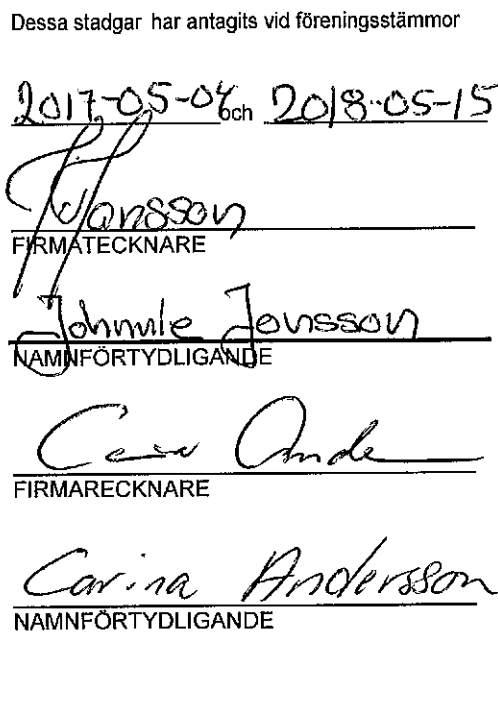 Dessa stadgar har antagits vid föreningsstämmor
2017-05-04 och 2018-05-15
FIRMATECKNARE
Johnnie Jonsson
NAMNFÖRTYDLIGANDE
FIRMARECKNARE
Carina Andersson
NAMNFÖRTYDLIGANDE